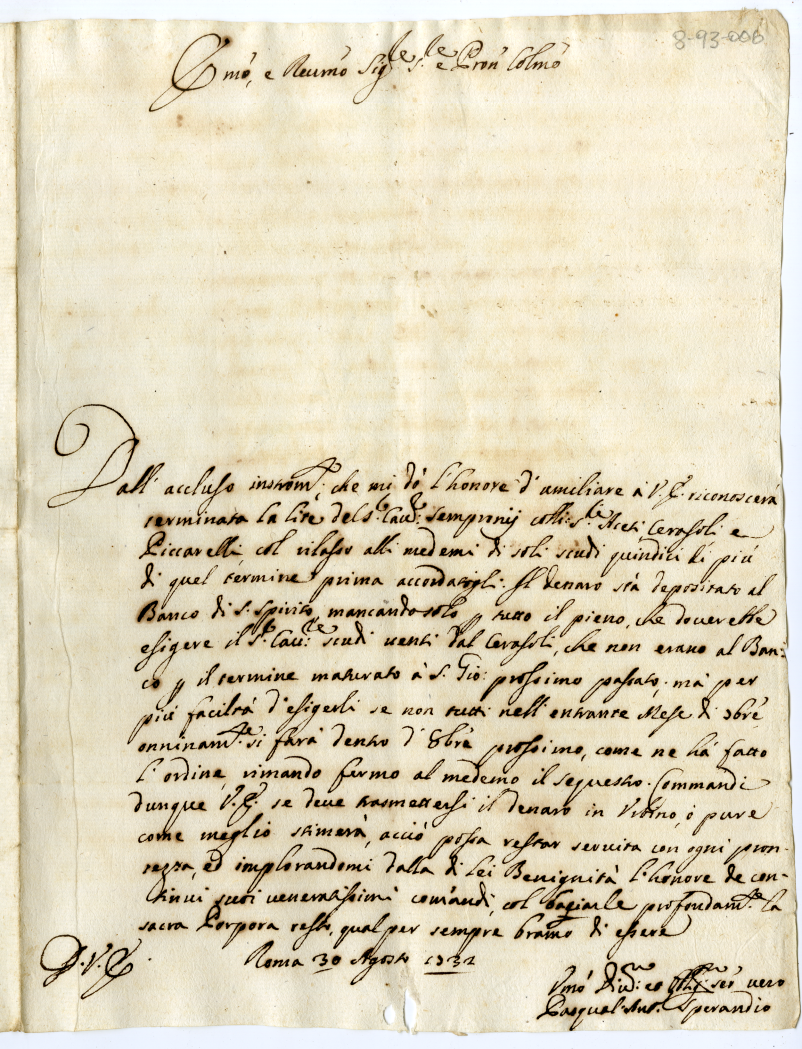 8-93-006
Emo, e Reumo Sig.re s.re e Pron Colmo
Dall' accluso instrom.to, che mi dò l'honore d'umiliare à V.E. riconoscerà
terminata la lite del s.r Cau.re Sempronij colli s.ri Aceti, Cerasoli e
Piccarelli col rilasso alli medemi di soli scudi quindici di più
di quel termine prima accordatogli. Il denaro stà depositato al
Banco di s. Spirito, mancando solo p tutto il pieno, che douerebbe
esigere il s.r Cau.re scudi uenti dal Cerasoli, che non erano al Ban-
co p il termine maturato à s. Gio: prossimo passato. mà per
più facilità d'esigerli se non tutti nell' entrante Mese di 7bre
onninam.te si farà dentro d' 8bre prossimo, come ne hà fatto
l'ordine, rimando fermo al medemo il sequestro. Commandi
dunque V.E. se deve trasmettersi il denaro in Vrbino, ò pure
come meglio stimerà, acciò possa restar seruita con ogni pron-
tezza, ed implorandomi dalla di Lei Benignità l'honore de con-
tinui suoi ueneratissimi comandi, col bagiarle profondam.te la
sacra Porpora resto, qual per sempre bramo di essere
D.V.E.
Roma 30 Agosto 1732
Vmo Diu.mo ed seo uero
Pasqual Ant. Sperandio